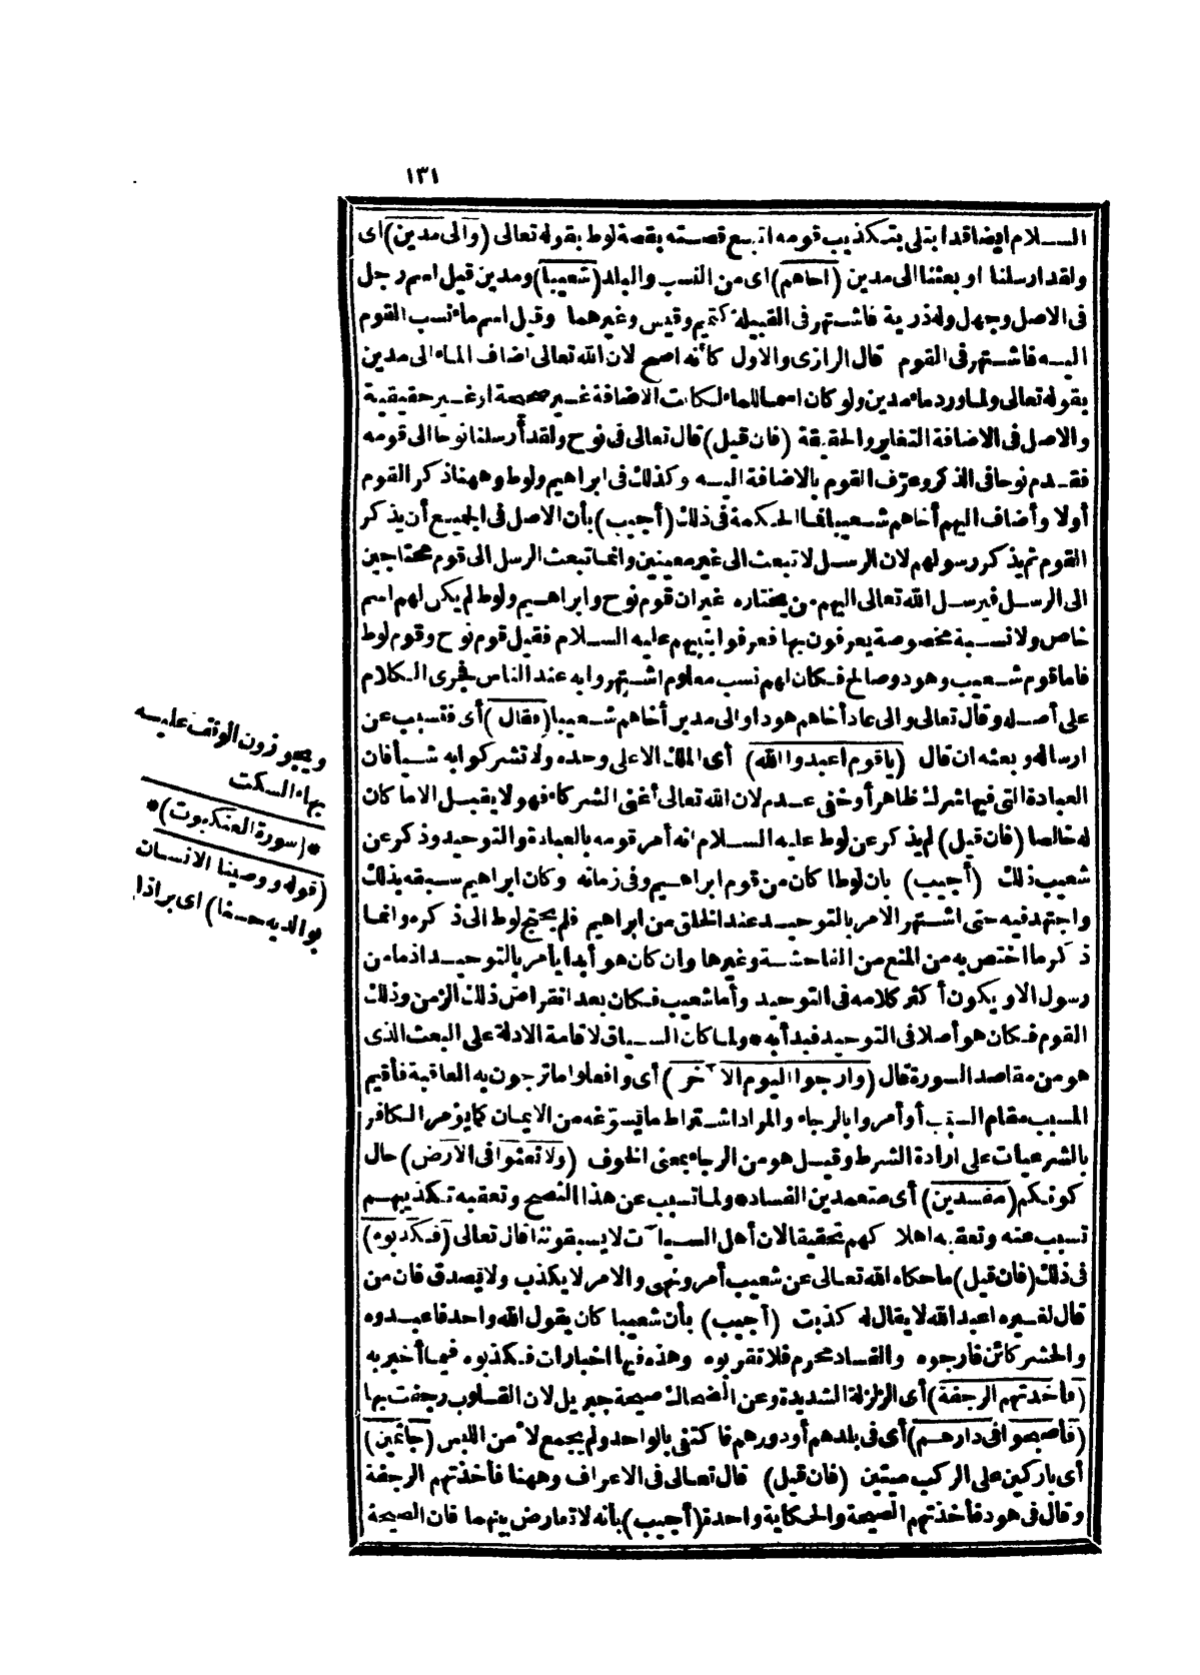 ١٣١
السلام ايضا قد ابتلى بتكذيب قومه اتبع قصته بقصة لوط بقوله تعالى (والى مدين) اى
ولقد ارسلنا او بعثنا الى مدين (اخاهم) اى من النسب والبلد (شعيبا) ومدين قيل اسم رجل
فى الاصل وجهل وله ذرية فاشتهر فى القبيلة كتميم وقيس وغيرهما وقيل اسم ماء نسب القوم
اليه فاشتهر فى القوم قال الرازى والاول كأنه اصح لان الله تعالى اضاف الماء الى مدين
بقوله تعالى ولما ورد ماء مدين ولو كان اسما للماء لكانت الاضافة غير صحيحة او غير حقيقية
والاصل فى الاضافة التغاير والحقيقة (فان قيل) قال تعالى فى نوح ولقد أرسلنا نوحا الى قومه
فقدم نوحا فى الذكر وعرّف القوم بالاضافة اليه وكذلك فى ابراهيم ولوط وههنا ذكر القوم
أولا وأضاف اليهم أخاهم شعيبا فما الحكمة فى ذلك (أجيب) بأن الاصل فى الجميع أن يذكر
القوم ثم يذكر رسولهم لان الرسل لا تبعث الى غير معينين وانما تبعث الرسل الى قوم محتاجين
الى الرسل فيرسل الله تعالى اليهم من يختاره غير ان قوم نوح وابراهيم ولوط لم يكن لهم اسم
خاص ولا نسبة مخصوصة يعرفون بها فعرفوا بنبيهم عليه السلام فقيل قوم نوح وقوم لوط
فاما قوم شعيب وهود وصالح فكان لهم نسب معلوم اشتهروا به عند الناس فجرى الكلام
على أصله وقال تعالى والى عاد أخاهم هودا والى مدين أخاهم شعيبا (فقال) أى فتسبب عن
ارساله وبعثه ان قال (ياقوم اعبدوا الله) أى الملك الاعلى وحده ولا تشركوا به شيأ فان
العبادة التى فيها شرك ظاهر أو خفى عدم لان الله تعالى أغنى الشركاء فهو لا يقبل الا ما كان
له خالصا (فان قيل) لم يذكر عن لوط عليه السلام انه أمر قومه بالعبادة والتوحيد وذكر عن
شعيب ذلك (أجيب) بان لوطا كان من قوم ابراهيم وفى زمانه وكان ابراهيم سبقه بذلك
واجتهد فيه حتى اشتهر الامر بالتوحيد عند الخلق من ابراهيم فلم يحتج لوط الى ذكره وانما
ذكر ما اختص به من المنع من الفاحشة وغيرها وان كان هو أبدا يأمر بالتوحيد اذ ما من
رسول الا ويكون أكثر كلامه فى التوحيد وأما شعيب فكان بعد انقراض ذلك الزمن وذلك
القوم فكان هو أصلا فى التوحيد فبدأ به * ولما كان السياق لاقامة الادلة على البعث الذى
هو من مقاصد السورة قال (وارجوا اليوم الآخر) أى وافعلوا ما ترجون به العاقبة فأقيم
المسبب مقام السبب أو أمروا بالرجاء والمراد اشتراط ما يسوّغه من الايمان كما يؤمر الكافر
بالشرعيات على ارادة الشرط وقيل هو من الرجاء بمعنى الخوف (ولا تعثوا فى الارض) حال
كونكم (مفسدين) أى متعمدين الفساد * ولما تسبب عن هذا النصح وتعقبه تكذيبهم
تسبب عنه وتعقبه اهلاكهم تحقيقا لان أهل السيآت لا يسبقوننا قال تعالى (فكذبوه)
فى ذلك (فان قيل) ما حكاه الله تعالى عن شعيب أمر ونهى والامر لا يكذب ولا يصدق فان من
قال لغيره اعبد الله لا يقال له كذبت (أجيب) بأن شعيبا كان يقول الله واحد فاعبدوه
والحشر كائن فارجوه والفساد محرم فلا تقربوه وهذه فيها اخبارات فكذبوه فيما أخبر به
(فأخذتهم الرجفة) أى الزلزلة الشديدة وعن الضحاك صيحة جبريل لان القلوب رجفت بها
(فأصبحوا فى دارهم) أى فى بلدهم أو دورهم فاكتفى بالواحد ولم يجمع لأمن اللبس (جاثمين)
أى باركين على الركب ميتين (فان قيل) قال تعالى فى الاعراف وههنا فأخذتهم الرجفة
وقال فى هود فأخذتهم الصيحة والحكاية واحدة (أجيب) بأنه لا تعارض بينهما فان الصيحة
ويجوزون الوقف عليه
بهاء السكت
*(سورة العنكبوت)*
(قوله ووصينا الانسان
بوالديه حسنا) اى برا ذا